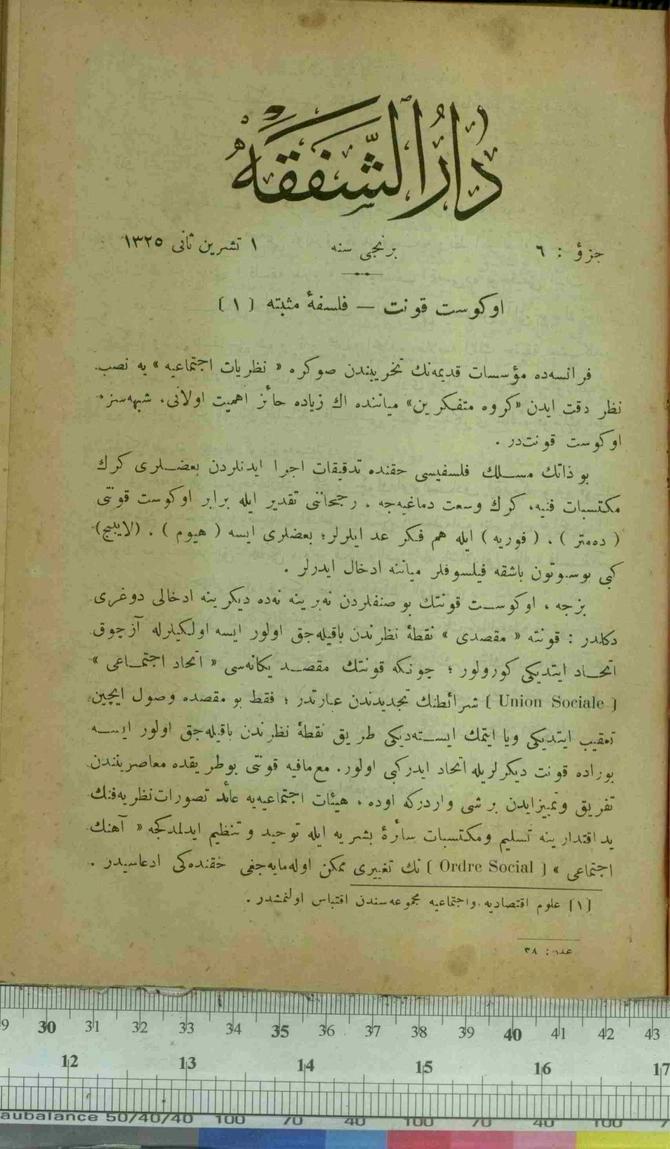 دار الشفقه
جزؤ : ٦ برنجی سنه ١ تشرین ثانی ١٣٢٥
اوكوست قونت — فلسفهٔ مثبته (١)
فرانسه‌ده مؤسسات قدیمه‌نك تخریبندن صوكره « نظریات اجتماعیه » یه نصب
نظر دقت ایدن «كروه متفكرین» میاننده اك زیاده حائز اهمیت اولانی، شبهه‌سز
اوكوست قونت‌در .
بو ذاتك مسلك فلسفیسی حقنده تدقیقات اجرا ایدنلردن بعضلری كرك
مكتسبات فنیه، كرك وسعت دماغیه‌جه ، رجحاننی تقدیر ایله برابر اوكوست قونتی
( ده‌متر ) ، ( فوریه ) ایله هم فكر عد ایلرلر؛ بعضلری ایسه ( هیوم ) ، (لایبنج)
كبی بوسبوتون باشقه فیلسوفلر میاننه ادخال ایدرلر .
بزجه ، اوكوست قونتك بو صنفلردن نه‌برینه نه‌ده دیكرینه ادخالی دوغری
دكلدر : قونته « مقصدی » نقطهٔ نظرندن باقیله‌جق اولور ایسه اولكیلرله آز چوق
اتحاد ایتدیكی كورولور ؛ چونكه قونتك مقصد یكانه‌سی « اتحاد اجتماعی »
( Union Sociale ) شرائطنك تجدیدندن عبارتدر ؛ فقط بو مقصده وصول ایچین
تعقیب ایتدیكی ویا ایتمك ایسته‌دیكی طریق نقطهٔ نظرندن باقیله‌جق اولور ایسه
بوراده قونت دیكرلریله اتحاد ایدر كبی اولور. مع‌مافیه قونتی بو طریقده معاصریندن
تفریق وتمییز ایدن بر شی واردركه اوده ، هیئات اجتماعیه‌یه عائد تصورات نظریه‌نك
ید اقتدارینه تسلیم ومكتسبات سائرهٔ بشریه ایله توحید و تنظیم ایدلمدكجه « آهنك
اجتماعی » ( Ordre Social ) نك تغییری ممكن اوله‌مایه‌جغی حقنده‌كی ادعاسیدر .
(١) علوم اقتصادیه واجتماعیه مجموعه‌سندن اقتباس اولنمشدر .
عدد : ٣٨
30 31 32 33 34 35 36 37 38 39 40 41 42 43
12 13 14 15 16 17
aubalance 50/40/40 100 70 40 100 70 40 100